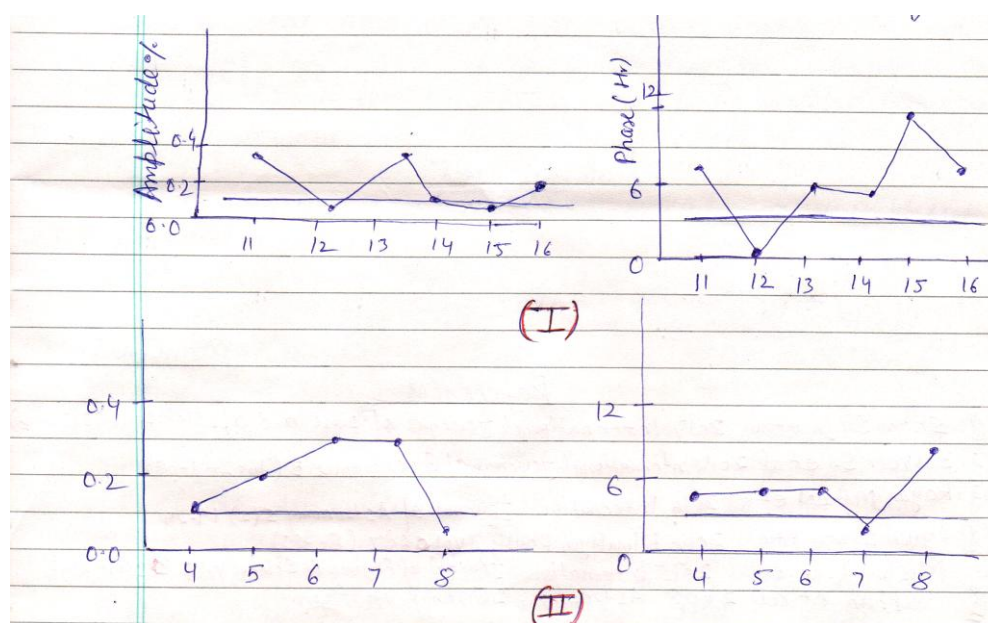 Amplitude %
0.4
0.2
6.0
11 12 13 14 15 16
Phase (Hr)
12
6
0
11 12 13 14 15 16
(I)
0.4
0.2
0.0
4 5 6 7 8
12
6
0
4 5 6 7 8
(II)